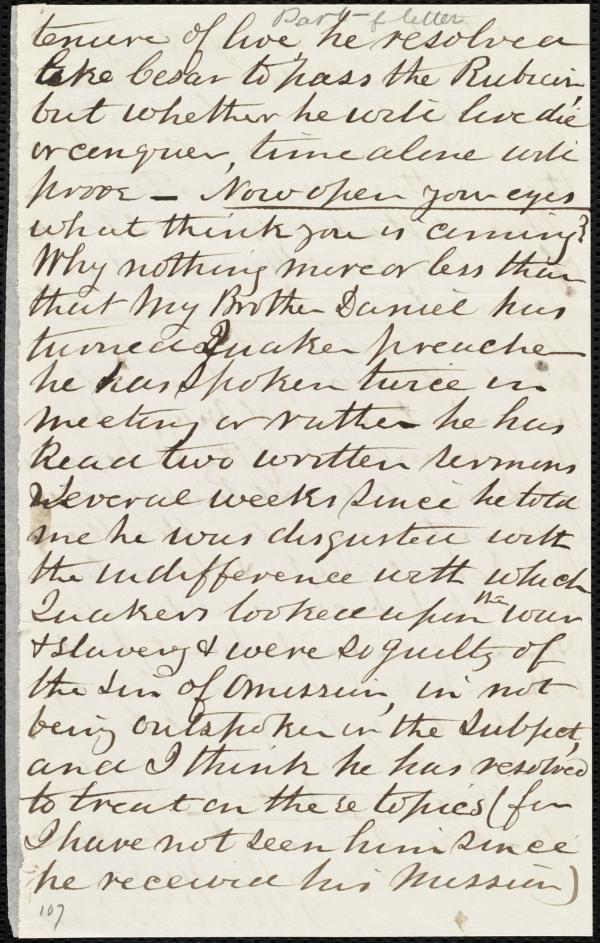 Part of letter
tenure of live he resolved
like Cesar to pass the Rubicon,
but whether he will live die
or conquer, time alone will
prove — Now open your eyes
what think you is coming?
Why nothing more or less than
that My Brother Daniel has
turned Quaker preacher
he has spoken twice in
meeting or rather he has
Read two written sermons
Several weeks since he told
me he was disgusted with
the indifference with which
Quakers looked upon the war
& slavery & were so guilty of
the Sin of Omission, in not
being outspoken in the Subject,
and I think he has resolved
to treat on these topics (for
I have not seen him since
he received his Mission)
107